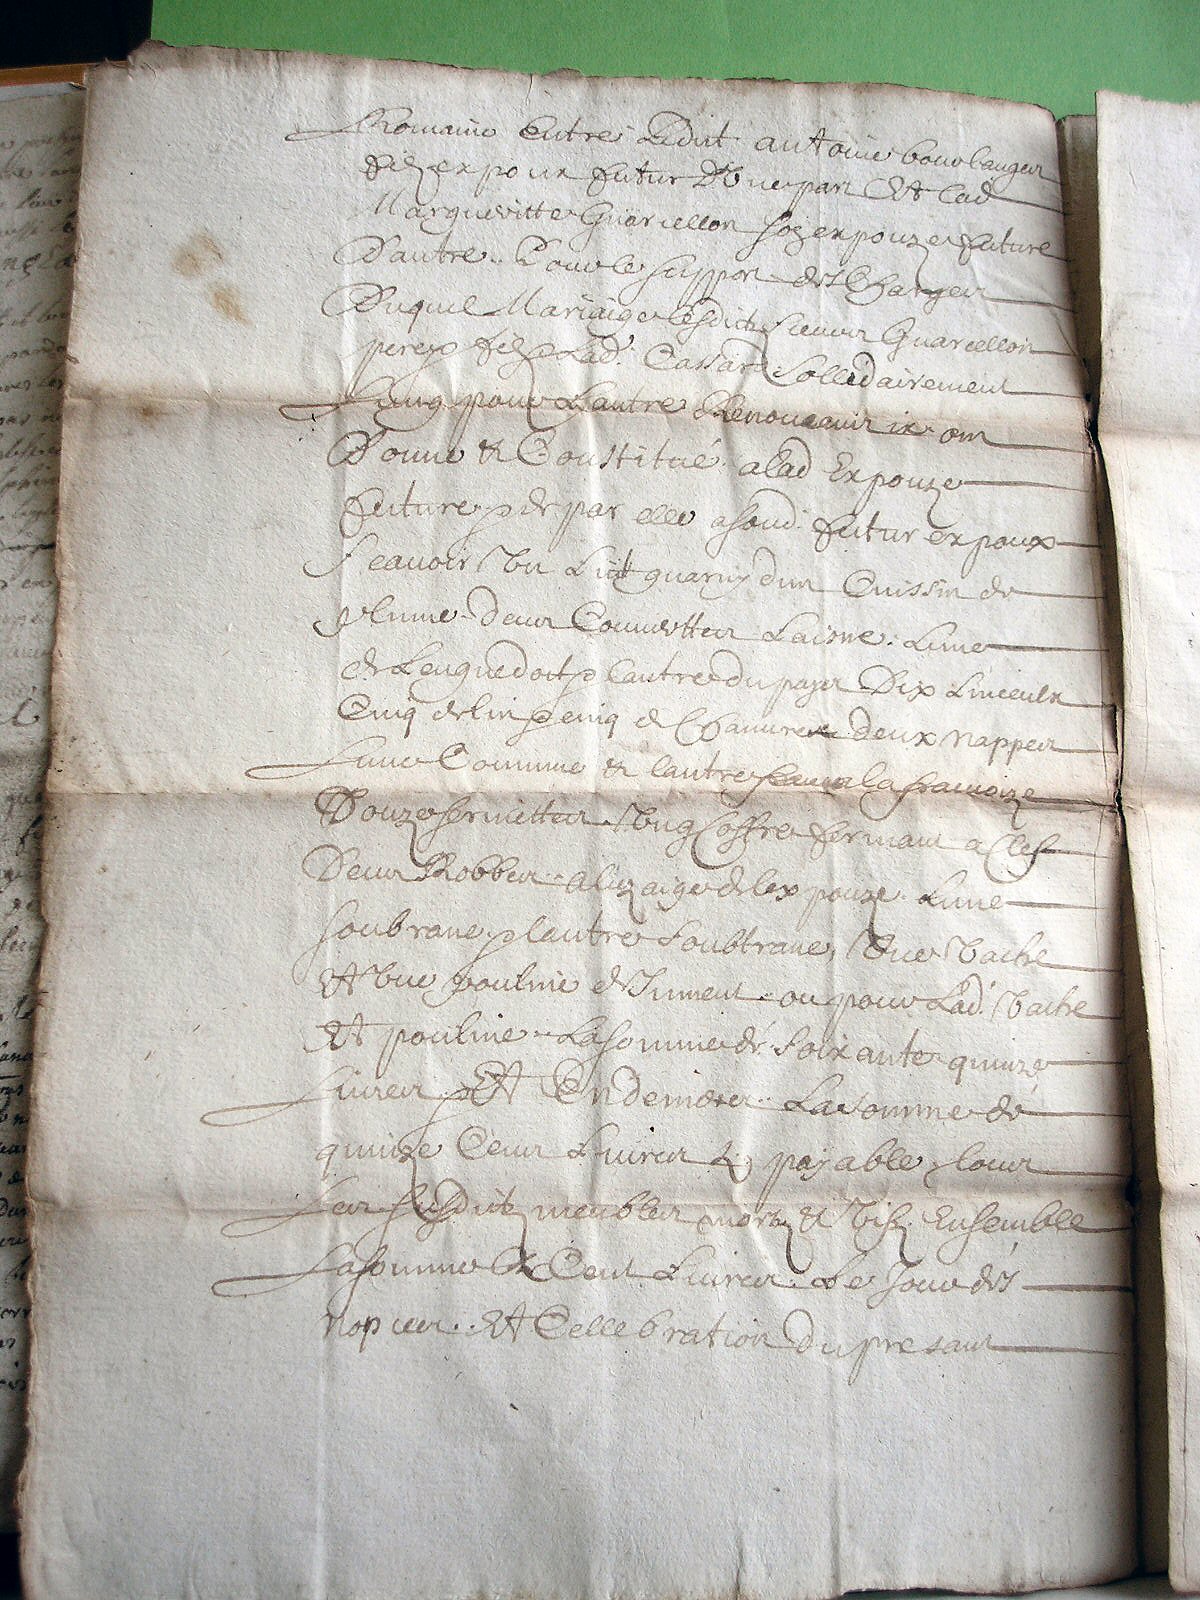 Romaine Entre Ledict antoine boulanger
filz expoux futur D'Une part Et Lad
Margueritte Guarcellon foz expouze future
D'autre. Pour le suppor des Charges
Duquel Mariaige lesdictz sieurs Guarcellon
pere & filz & Lad. Cassard Sollidairement
Lung pour Lautre Renonceant ix om
Donne & Constitué alad Expouze
future & de par elle a soud. futur expoux
Scauoir Vn Lict guarny dun Cuissin de
plume deux Couuertter Laisne. Lune
de Lenguedoct & lautre du pays Dix Linceulx
Cinq de lin & cinq de Chanure deux nappes
Lune Commune & lautre a la francoize
Douze seruiettes Vng Coffre fermant a Clef
Deux Robbes a luzaige de lexpouze. Lune
soubrane & lautre soubtrane, Vne Vache
Et Vne pouline de Jument ou pour Lad. Vache
Et pouline. La somme de soixante quinze
Liures & Et En deniers. La somme de
quinze Cens Liures payable scauoir
Les susdictz meubles mortz & Vifz Ensemble
La somme de Cent Liures. Le Jour des
nopces. Et Cellebration du presant